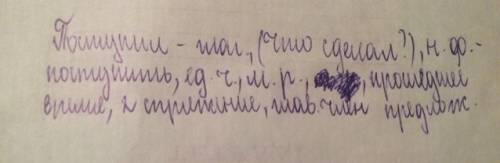 Поступил - глаг., (что сделал?), н.ф.-
поступить, ед.ч., м.р., прошедшее
время, 2 спряжение, глав. член предлож.